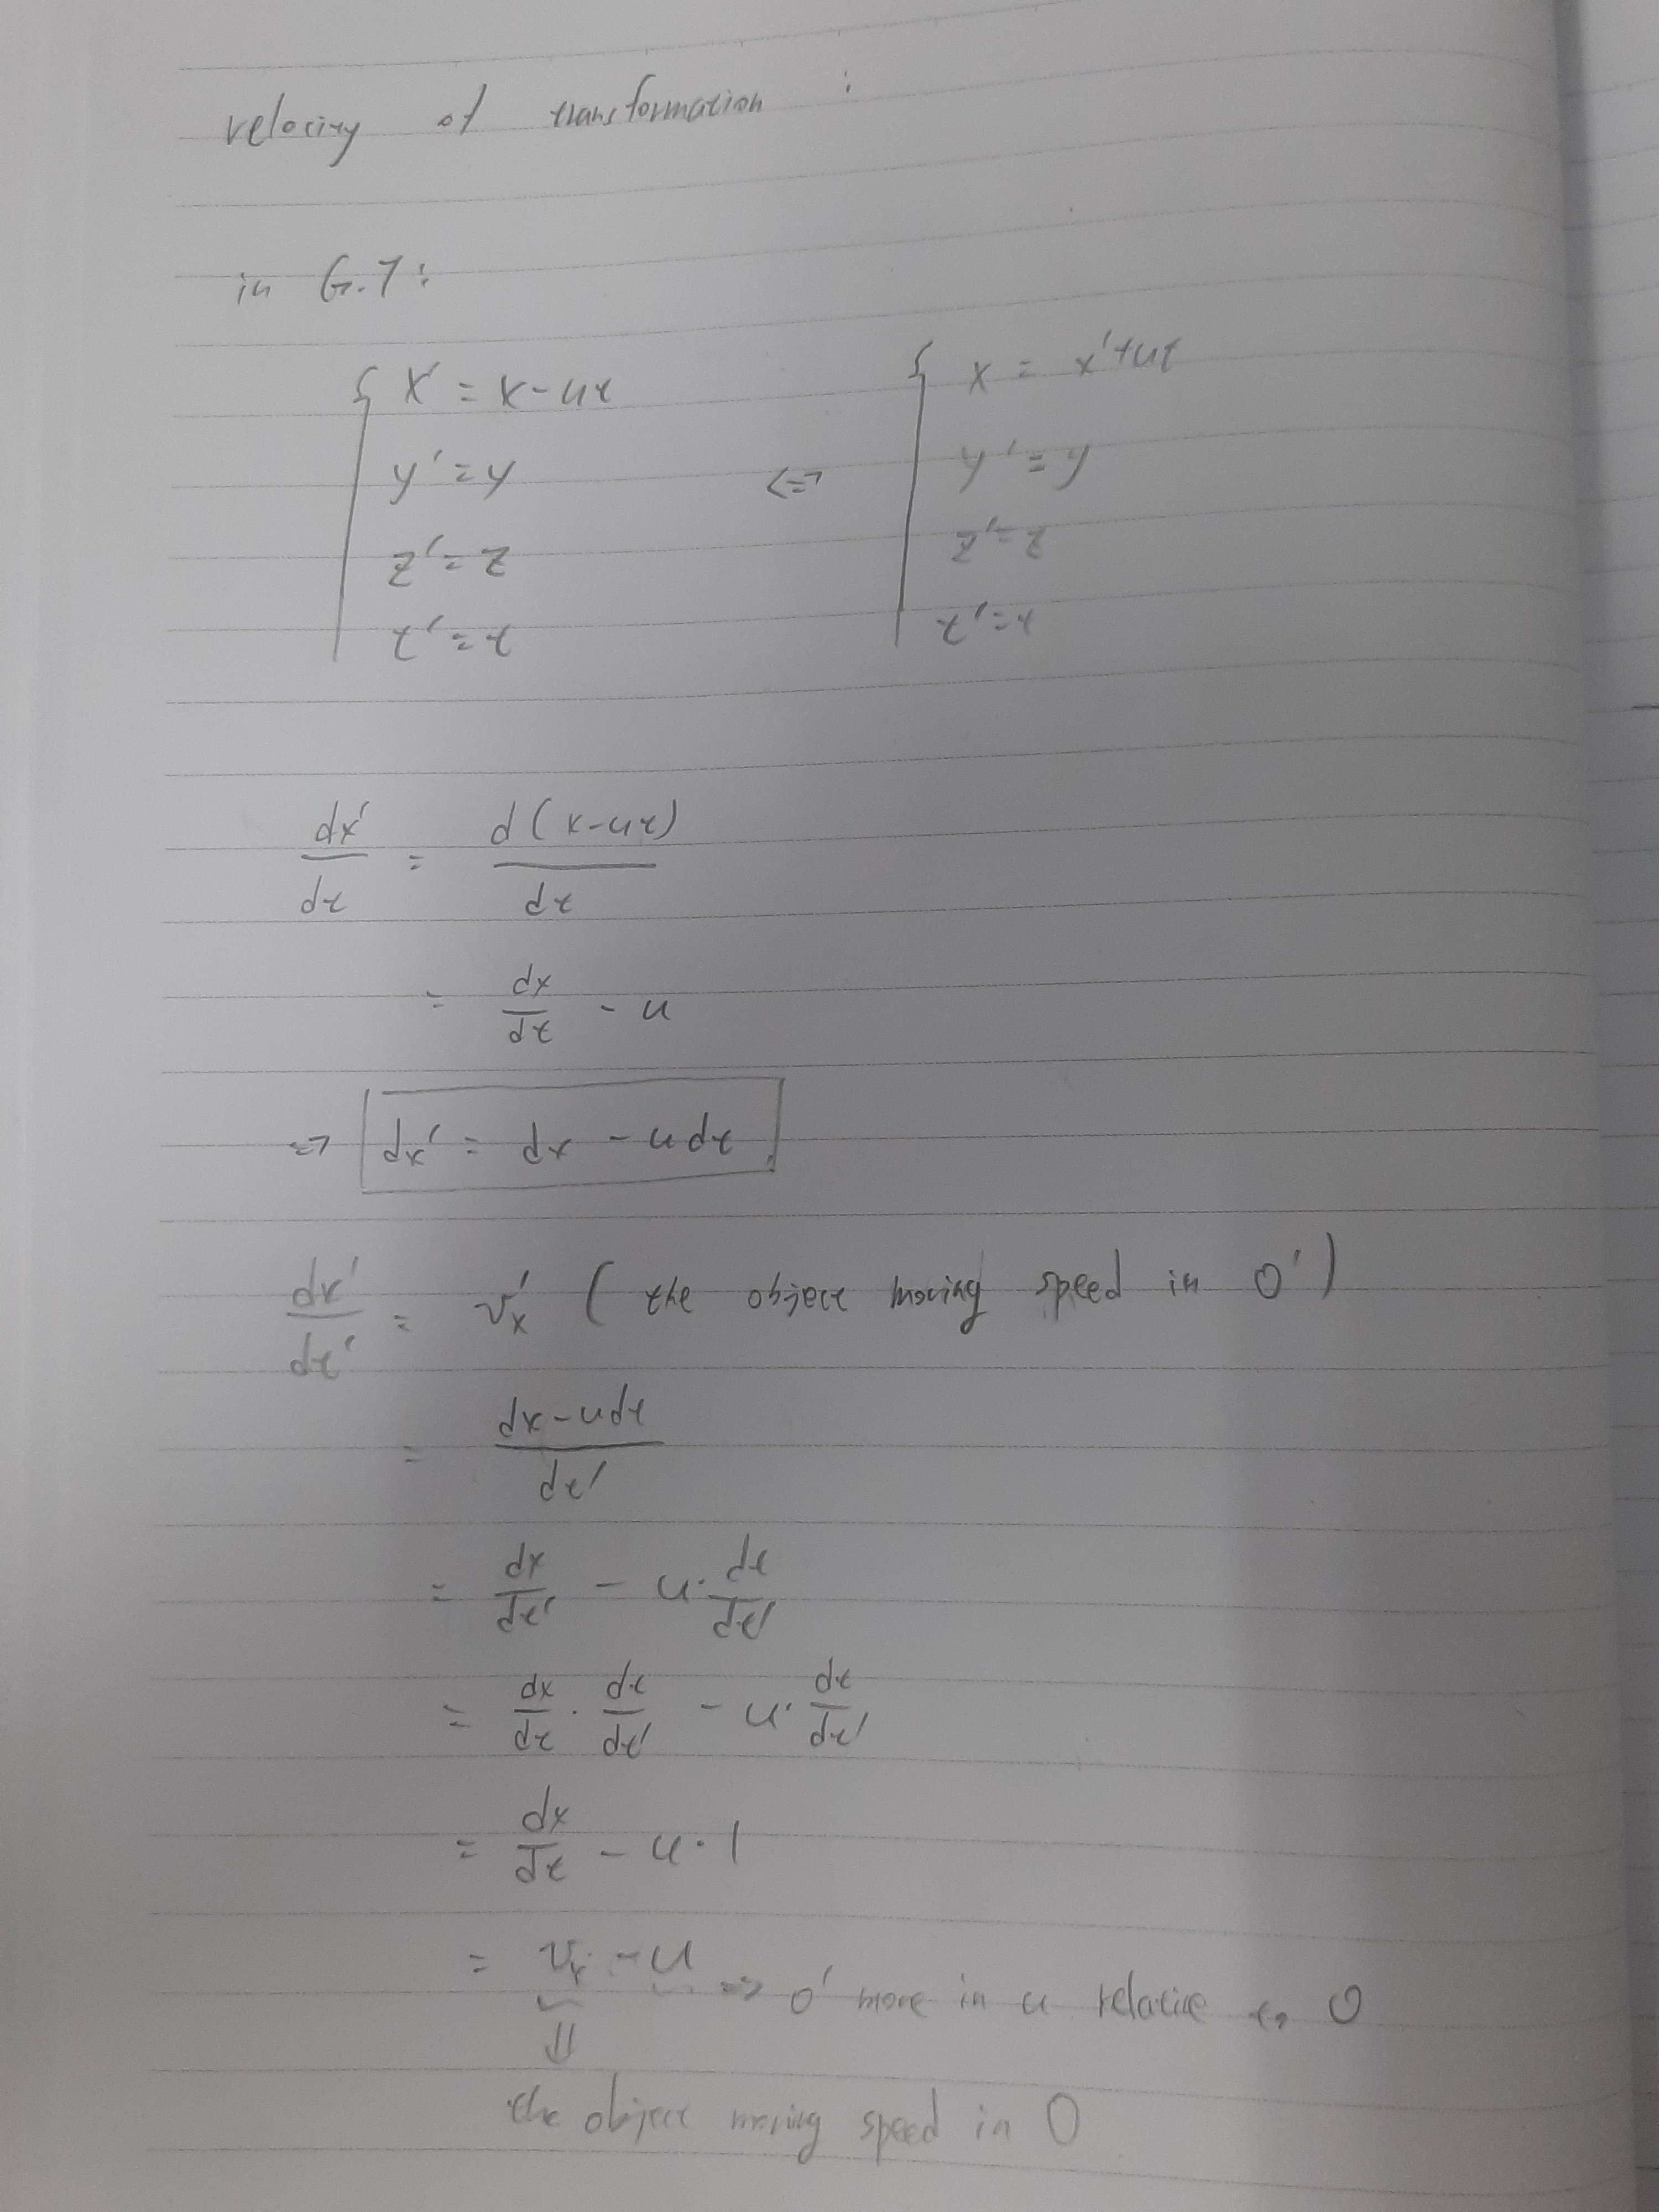 velocity of transformation :
in G.T :
{ x' = x - ut <=> { x = x' + ut
y' = y y' = y
z' = z z' = z
t' = t t' = t
dx'/dt = d(x-ut)/dt
= dx/dt - u
=> dx' = dx - udt
dx'/dt' = v'x ( the object moving speed in O' )
= dx-udt/dt'
= dx/dt' - u·dt/dt'
= dx/dt · dt/dt' - u·dt/dt'
= dx/dt - u·1
= vx - u => O' move in u relative to O
⇓
the object moving speed in O